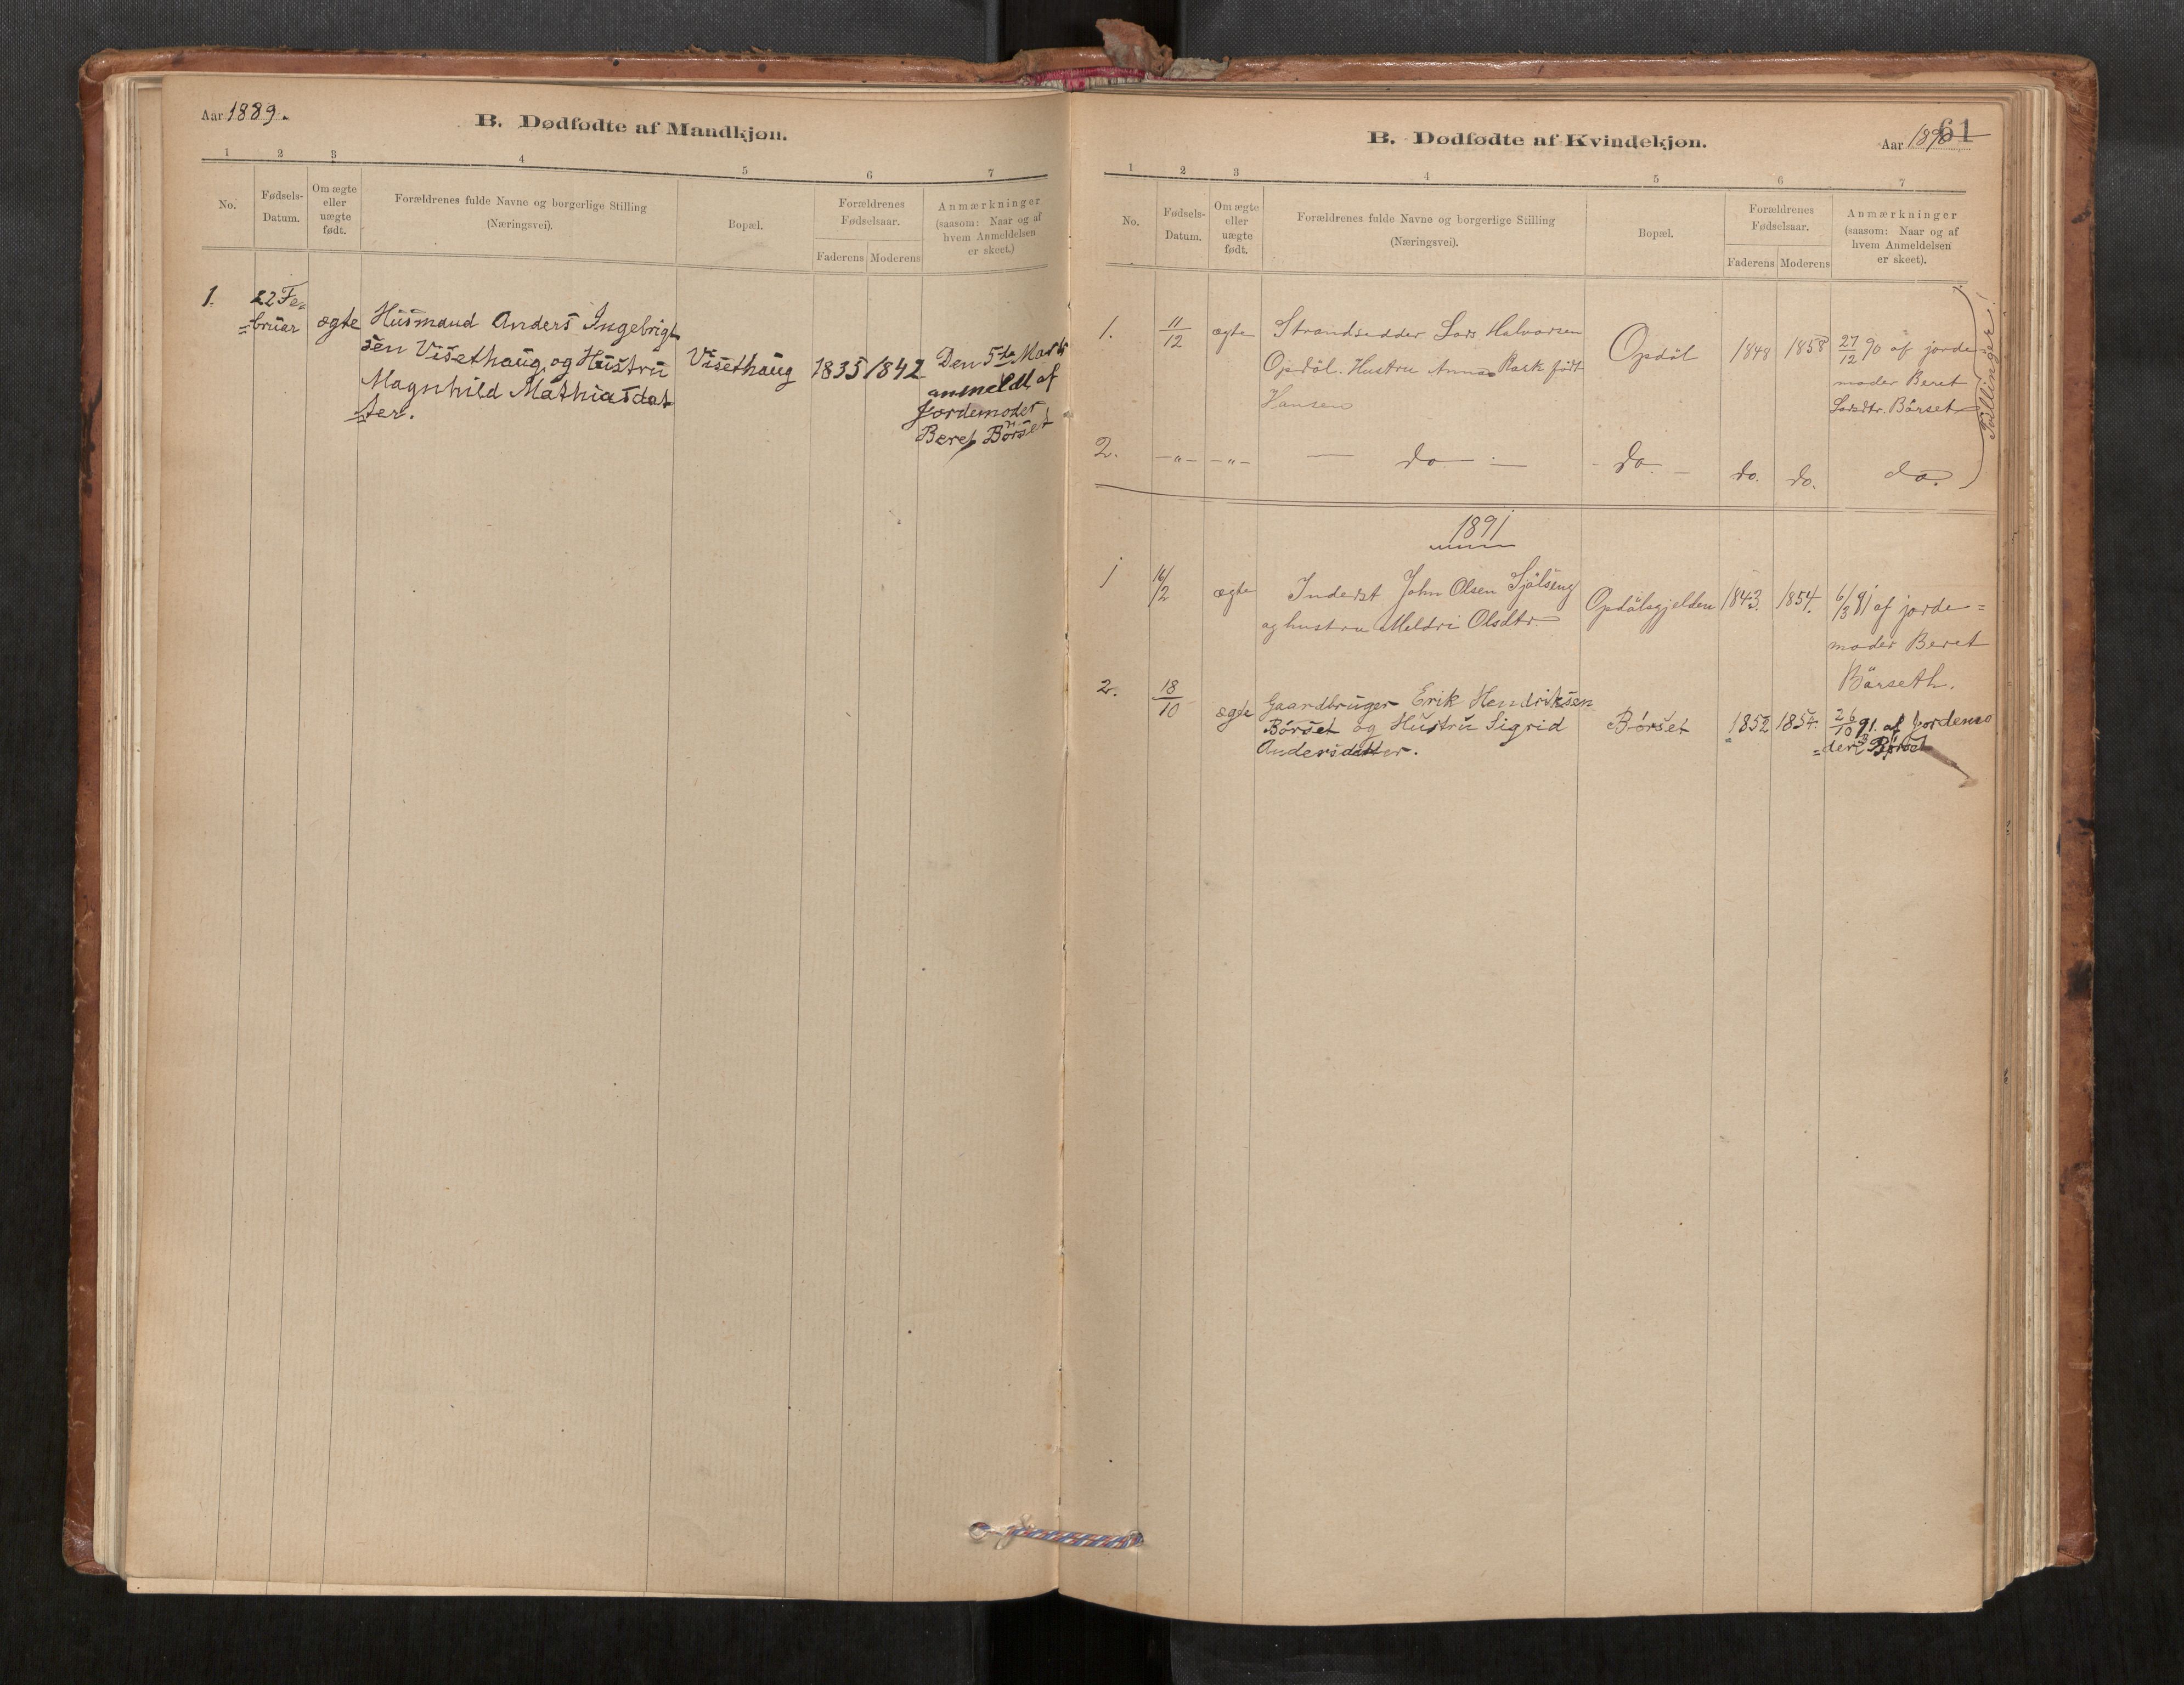 Aar 1889.
B. Dødfødte af Mandkjøn.
1 2 3 4 5 6 7
No.
Fødsels-
Datum.
Om ægte
eller
uægte
født.
Forældrenes fulde Navne og borgerlige Stilling
(Næringsvei).
Bopæl.
Forældrenes
Fødselsaar.
Faderens Moderens
Anmærkninger
(saasom: Naar og af
hvem Anmeldelsen
er skeet.)
1. 22 Fe=
=bruar ægte Husmand Anders Ingebrigt
sen Visethaug og Hustru
Magnhild Mathiasdat
=ter.
Visethaug 1835 1842
Den 5te Marts
anmeldt af
Jordemoder
Beret Børset
61
B. Dødfødte af Kvindekjøn.
Aar 1890
1 2 3 4 5 6 7
No.
Fødsels-
Datum.
Om ægte
eller
uægte
født.
Forældrenes fulde Navne og borgerlige Stilling
(Næringsvei).
Bopæl.
Forældrenes
Fødselsaar.
Faderens Moderens
Anmærkninger
(saasom: Naar og af
hvem Anmeldelsen
er skeet).
1. 11/12 ægte Strandsidder Lars Halvorsen
Opdöl. Hustru Anna Rask født
Hansen
Opdöl 1848 1858
27/12 90 af jorde=
moder Beret
Larsdtr. Börset
2. -"- -"- — do — - do. - do. do. do.
Tvillinger!
1891
1 16/2 ægte Inderst John Olsen Sjölseng
og hustru Meldri Olsdtr.
Opdölsgjelden 1843. 1854.
6/3 91 af jorde=
moder Beret
Börseth.
2. 18/10 ægte Gaardbruger Erik Hendriksen
Børset og Hustru Sigrid
Andersdatter.
Børset 1852 1854.
26/10 91. af Jordemo
=der B. Børset